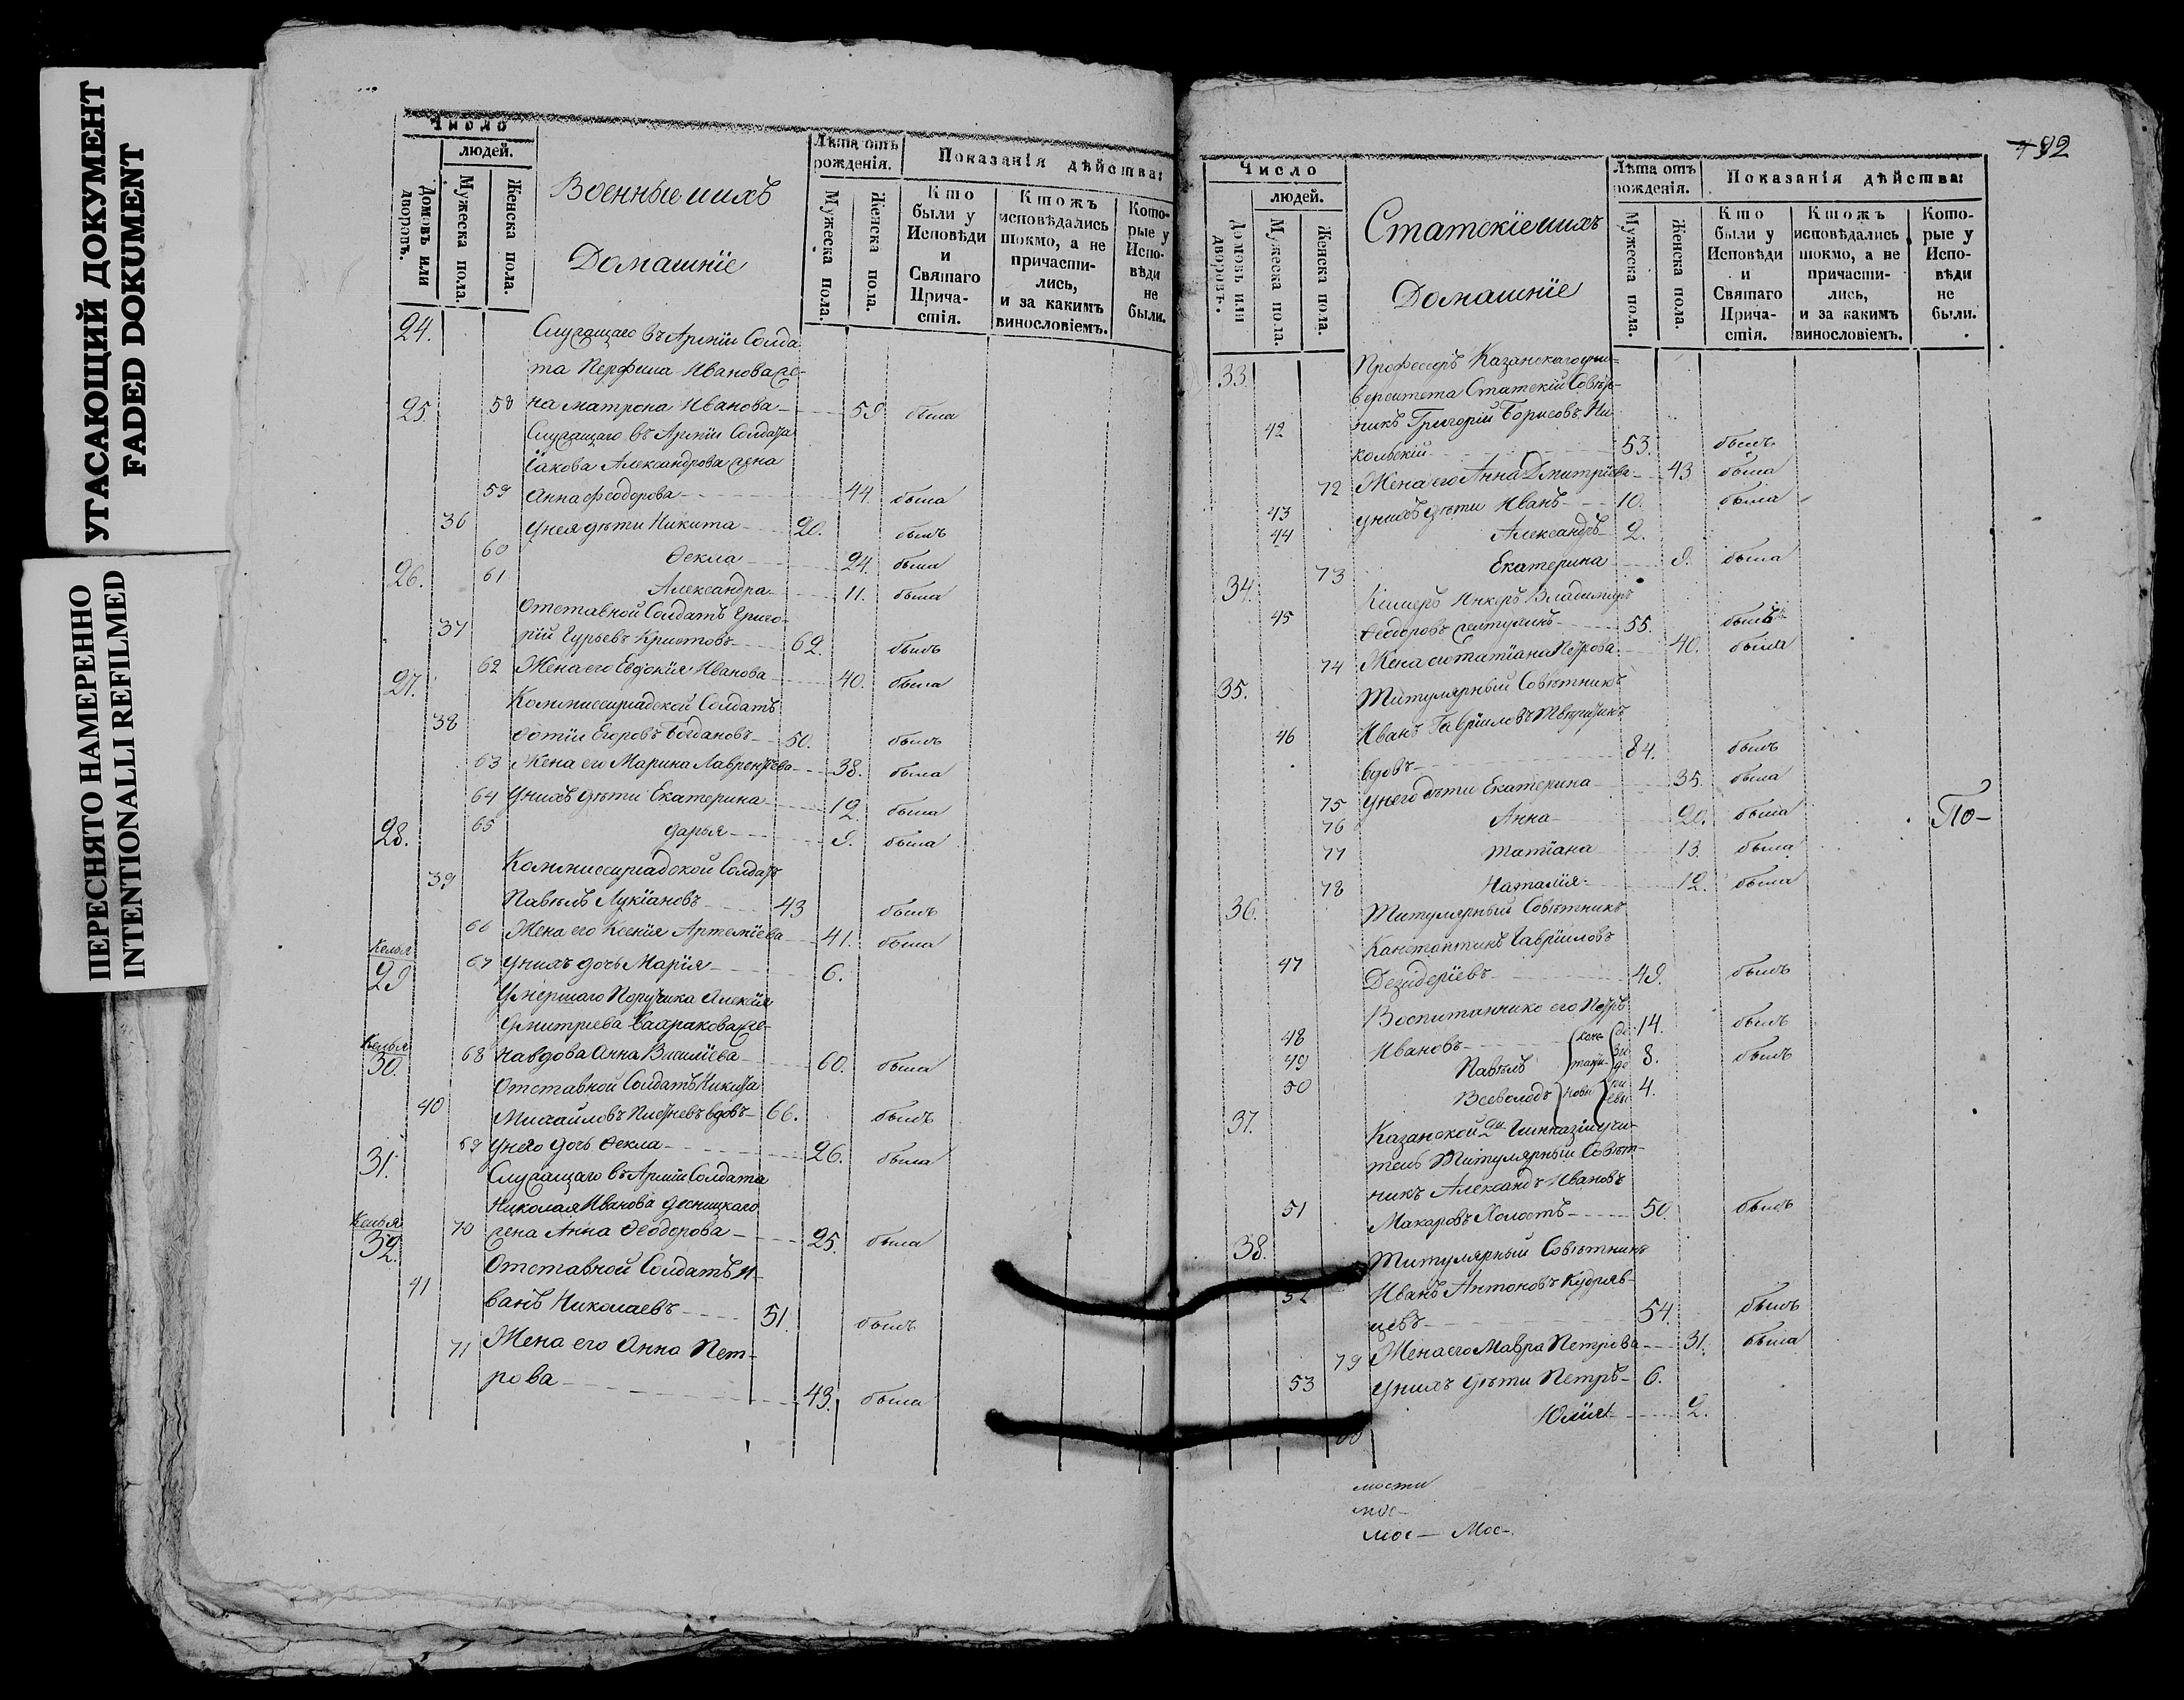 УГАСАЮЩИЙ ДОКУМЕНТ
FADED DOKUMENT
ПЕРЕСНЯТО НАМЕРЕННО
INTENTIONALLI REFILMED
Число
людей.
Домовъ или дворовъ.
Мужеска пола.
Женска пола.
Военные и ихъ
Домашніе
Лѣта отъ рожденія.
Мужеска пола.
Женска пола.
Показанія дѣйства:
Кто были у Исповѣди и Святаго Причастія.
Ктожъ исповѣдались токмо, а не причастились, и за какимъ винословіемъ.
Которые у Исповѣди не были.
24. Служащаго въ Арміи Солда
та Перфила Иванова же-
58 на Матрона Иванова 59 была
25. Служащаго въ Арміи Солдата
Іакова Александрова жена
59 Анна Феодорова 44. была
36 У нея дѣти Никита 20. былъ
60 Ѳекла 24. была
61 Александра 11. была
26. Отставной Солдатъ Григо-
37 рій Гурьевъ 62. былъ
62 Жена его Евдокія Иванова 40. была
27. Коммиссаріадской Солдатъ
38 Егоровъ Богдановъ 50. былъ
63 Жена его Марина Лаврентьева 38. была
64 У нихъ дѣти Екатерина 12. была
65 Дарья 9. была
28. Коммиссаріадской Солдатъ
39 Павелъ Лукіановъ 43 былъ
66 Жена его Ксенія Артеміева 41. была
67 У нихъ дочь Марія 6.
Келья
29 Умершаго Поручика Алексія
Дмитриева же-
68 на вдова Анна Василіева 60. была
Келья
30. Отставной Солдатъ Никита
40 Михайловъ вдовъ 66. былъ
69 У него дочь Ѳекла 26. была
31. Служащаго въ Арміи Солдата
Николая Иванова Десницкаго
70 жена Анна Ѳеодорова 25. была
Келья
32. Отставной Солдатъ И-
41 ванъ Николаевъ 51. былъ
71 Жена его Анна Пет-
рова 43. была
192
Число
людей.
Домовъ или дворовъ.
Мужеска пола.
Женска пола.
Статскіе и ихъ
Домашніе
Лѣта отъ рожденія.
Мужеска пола.
Женска пола.
Показанія дѣйства:
Кто были у Исповѣди и Святаго Причастія.
Ктожъ исповѣдались токмо, а не причастились, и за какимъ винословіемъ.
Которые у Исповѣди не были.
33. Професоръ Казанскаго уни-
верситета Статскій Совѣт-
42 никъ Григорій Борисовъ Ни
кольскій 53. былъ
72 Жена его Анна Дмитріева 43 была
43 У нихъ дѣти Иванъ 10. была
44 Александръ 2.
73 Екатерина 9. была
34. Владимиръ
45 Ѳеодоровъ 55. былъ
74 Жена его Татіана Петрова 40. была
35. Титулярный Совѣтникъ
46 Иванъ Гавріиловъ
вдовъ 84. былъ
75 У него дѣти Екатерина 35. была
76 Анна 20. была
77 Татіана 13. была
78 Наталія 12. была
По-
36. Титулярный Совѣтникъ
Канстантинъ Гавріиловъ
47 Дезидеріевъ 49. былъ
Воспитаннико его Петръ
48 Ивановъ 14. былъ
49 Павелъ 8. былъ
50 Всеволодъ 4.
37. Казанской Гимназіи учи-
тель Титулярный Совѣт-
никъ Александъ Ивановъ
51 Макаровъ Холостъ 50. былъ
38. Титулярный Совѣтникъ
52 Иванъ Антоновъ Кудряв-
цевъ 54. былъ
79 Жена его Мавра Петрова 31. была
53 У нихъ дѣти Петръ 6.
Юлія 2.
мости
мос-
мос- Мос-